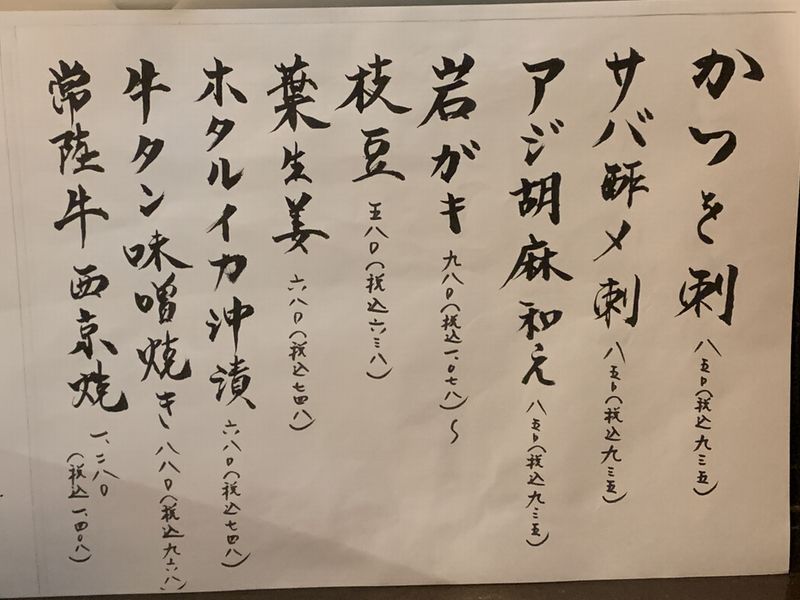 かつを刺 八五〇(税込九三五)
サバ酢〆刺 八五〇(税込九三五)
アジ胡麻和え 八五〇(税込九三五)
岩ガキ 九八〇(税込一、〇七八)〜
枝豆 五八〇(税込六三八)
葉生姜 六八〇(税込七四八)
ホタルイカ沖漬 六八〇(税込七四八)
牛タン味噌焼き 八八〇(税込九六八)
常陸牛西京焼 一、二八〇
(税込一、四〇八)